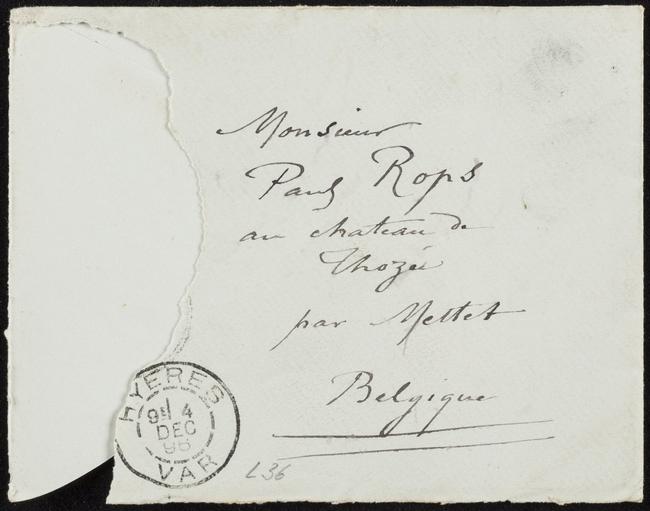 Monsieur
Paul Rops
au chateau de
Thozée
par Mettet
Belgique
HYERES
4
DEC
VAR
L36